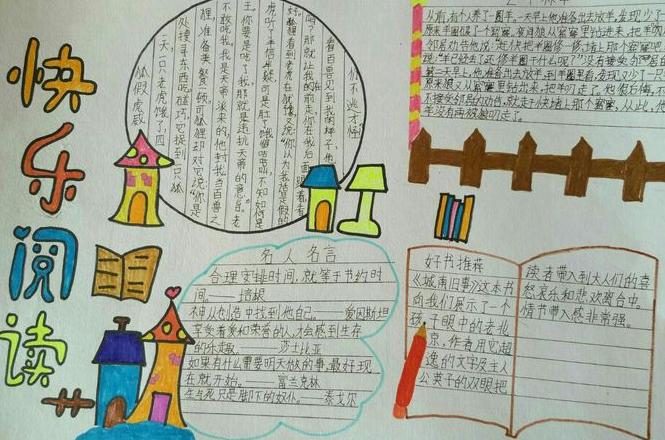 快乐阅读
狐假虎威
一天,一只老虎饿了,四
处搜寻东西吃,碰巧它捉到一只狐
狸,准备美餐一顿,可狐狸却对它说:"你是
不敢吃我。我是天帝派来的,他封我当百兽之
王,你要是吃了我,那就是违抗天帝的意旨。老
虎听了半信半疑,可是肚子饿得咕咕叫,不知如何是
好。狐狸看到老虎在犹豫,又说:"你以为我是假的
吗?那就让我在前走,你在我后面跟着看
看百兽见到我的样子,他
们不逃才怪
从前,有个人养了一圈羊。一天早上他准备出去放羊,发现少了
原来羊圈破了个窟窿,夜间狼从窟窿里钻进来,把羊叼
邻居劝告他说:"赶快把羊圈修一修,堵上那个窟窿吧
说:"羊已经丢了,还修羊圈干什么呢?"没有接受邻居的
第二天早上,他准备出去放羊,到羊圈里看,发现又少了一只
原来狼又从窟窿里钻进来,把羊叼走了。他很后悔,
不接受邻居的劝告,就赶快堵上那个窟窿,从此,他
羊没有再被狼叼走了。
名人名言
合理安排时间,就等于节约时
间。——培根
不中从创造中找到他自己。——爱因斯坦
享受着爱和荣誉的人,才会感到生存
的乐趣。——莎士比亚
如果有什么需要明天做的事,最好现
在就开始。——富兰克林
生与死只是脚下的奴仆。——泰戈尔
好书推荐
《城南旧事》这本书
向我们展示了一个
孩子眼中的老北
京,作者用它超
逸的文字及主人
公英子的双眼把
读者带入到大人们的喜
怒哀乐和悲欢离合中。
情节带入感非常强。